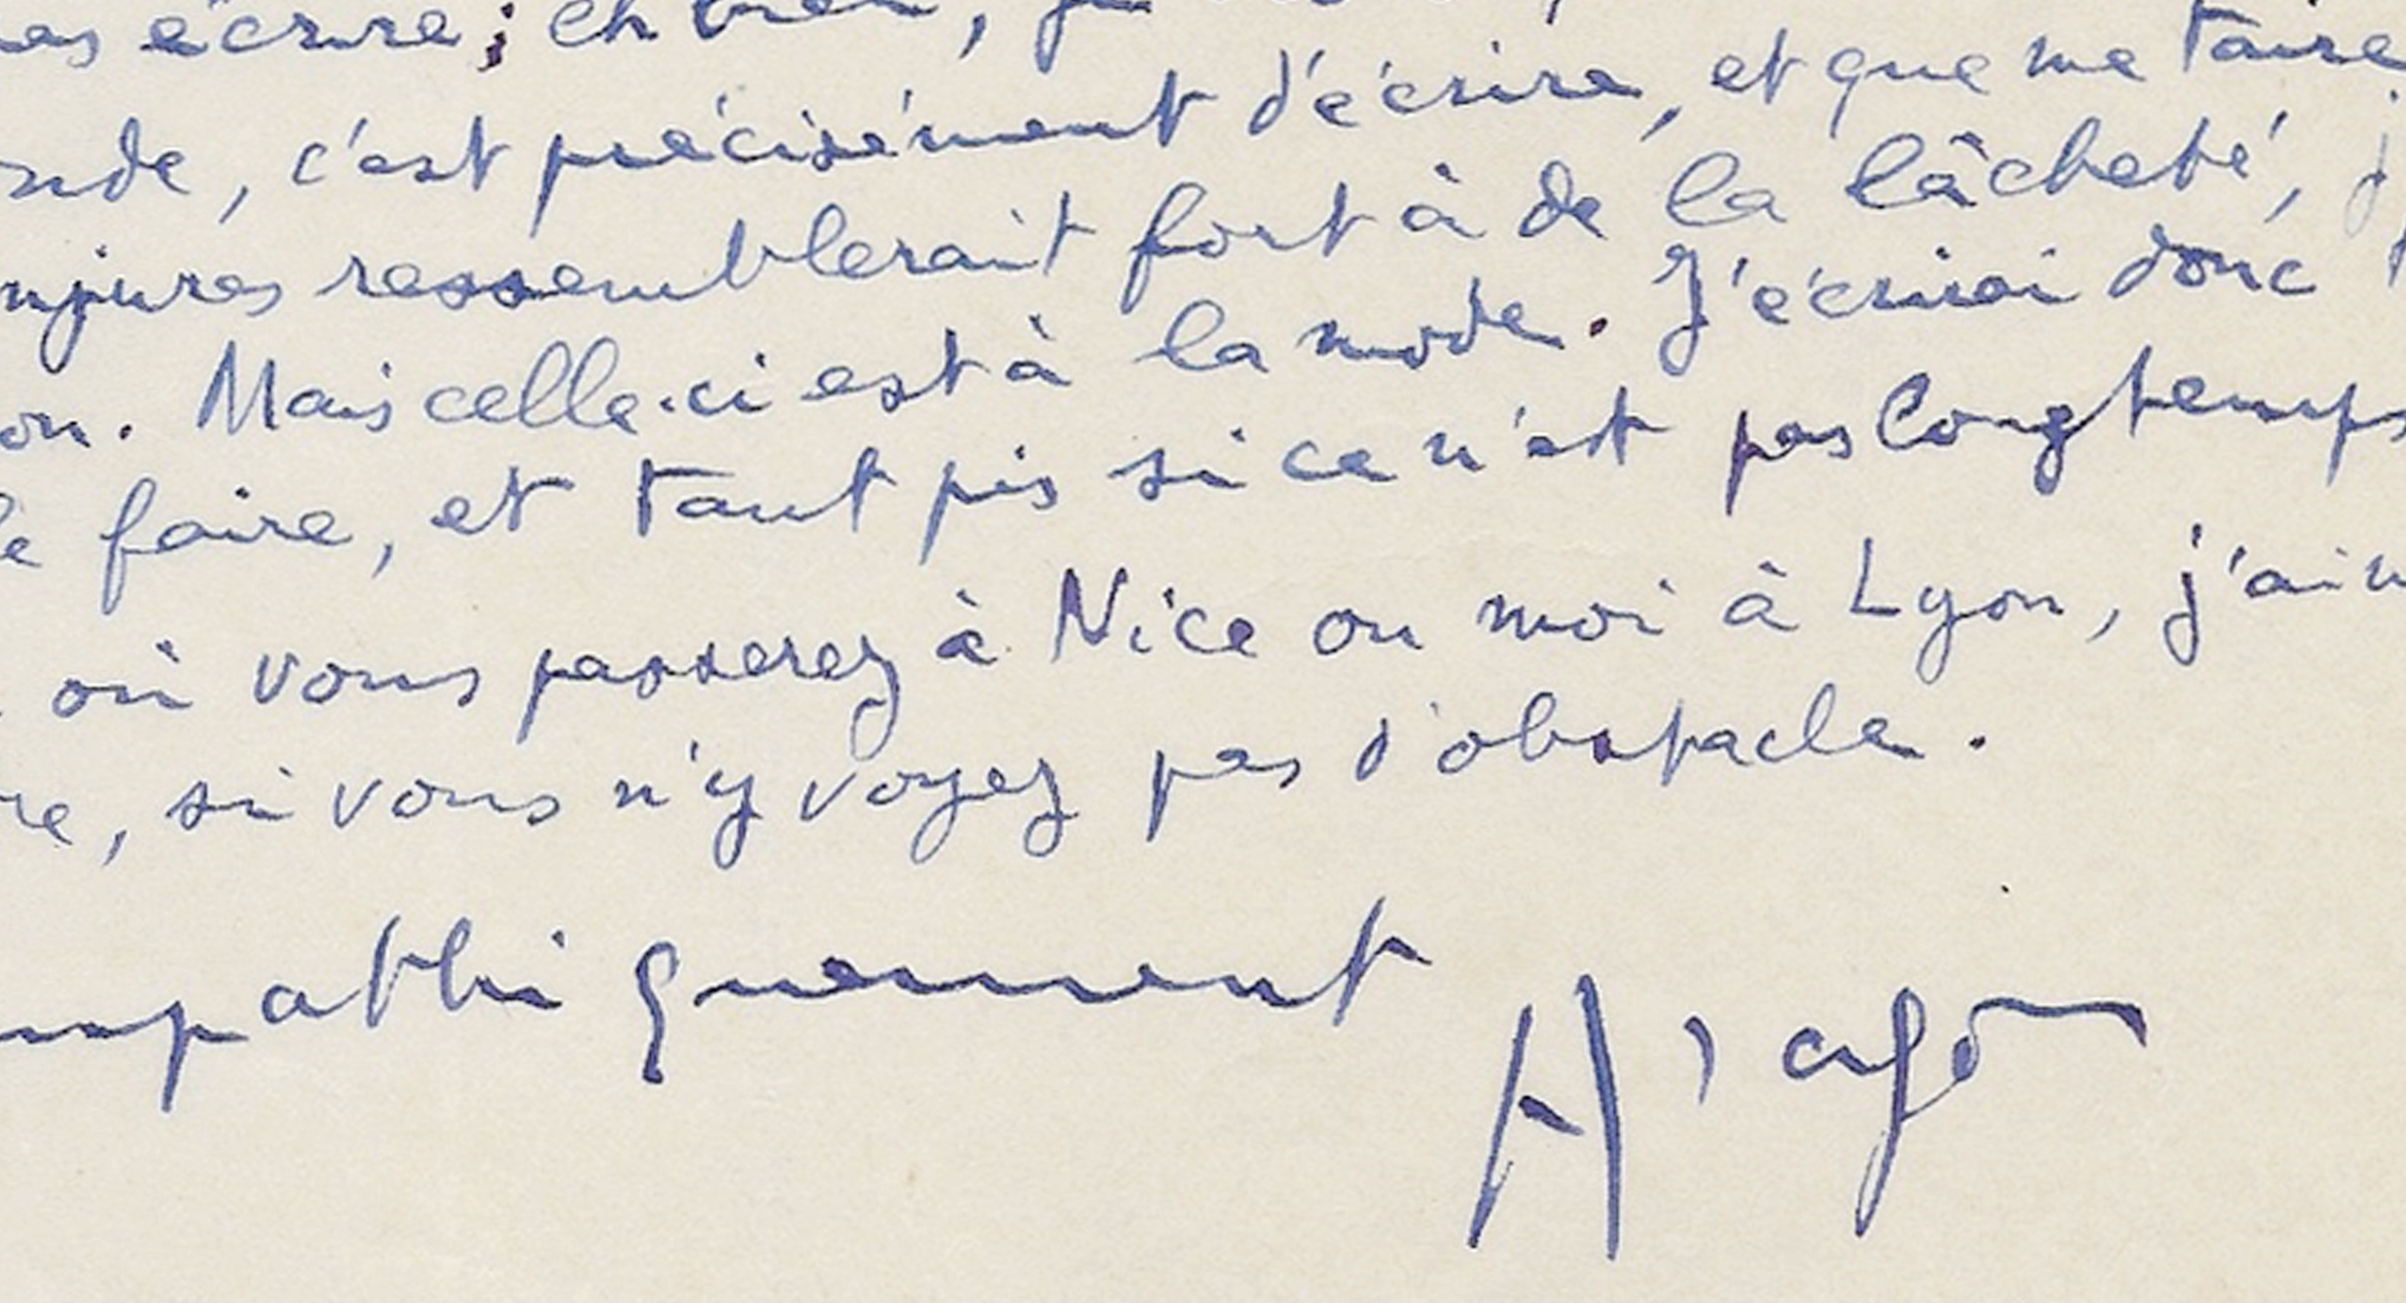 pas écrire; eh bien, je
nde, c'est précisément d'écrire, et que me taire
njures ressemblerait fort à de la lâcheté,
on. Mais celle-ci est à la mode. J'écrirai donc
le faire, et tant pis si ce n'est pas longtemps
où vous passerez à Nice ou moi à Lyon, j'aim
re, si vous n'y voyez pas d'obstacle.
mpathiquement
Aragon